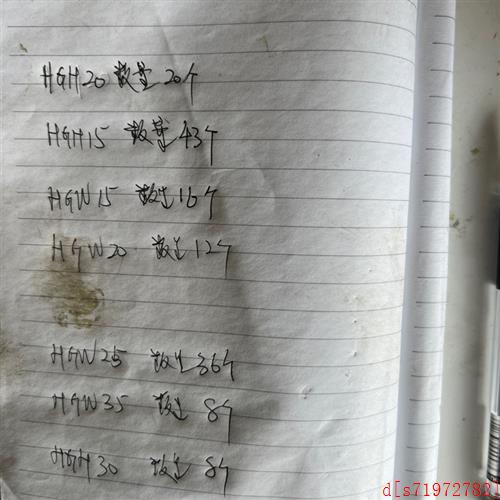 HGH20 数量20个
HGH15 数量43个
HGW15 数量16个
HGW20 数量12个
HGW25 数量36个
HGW35 数量8个
HGH30 数量8个
d[s71972783]